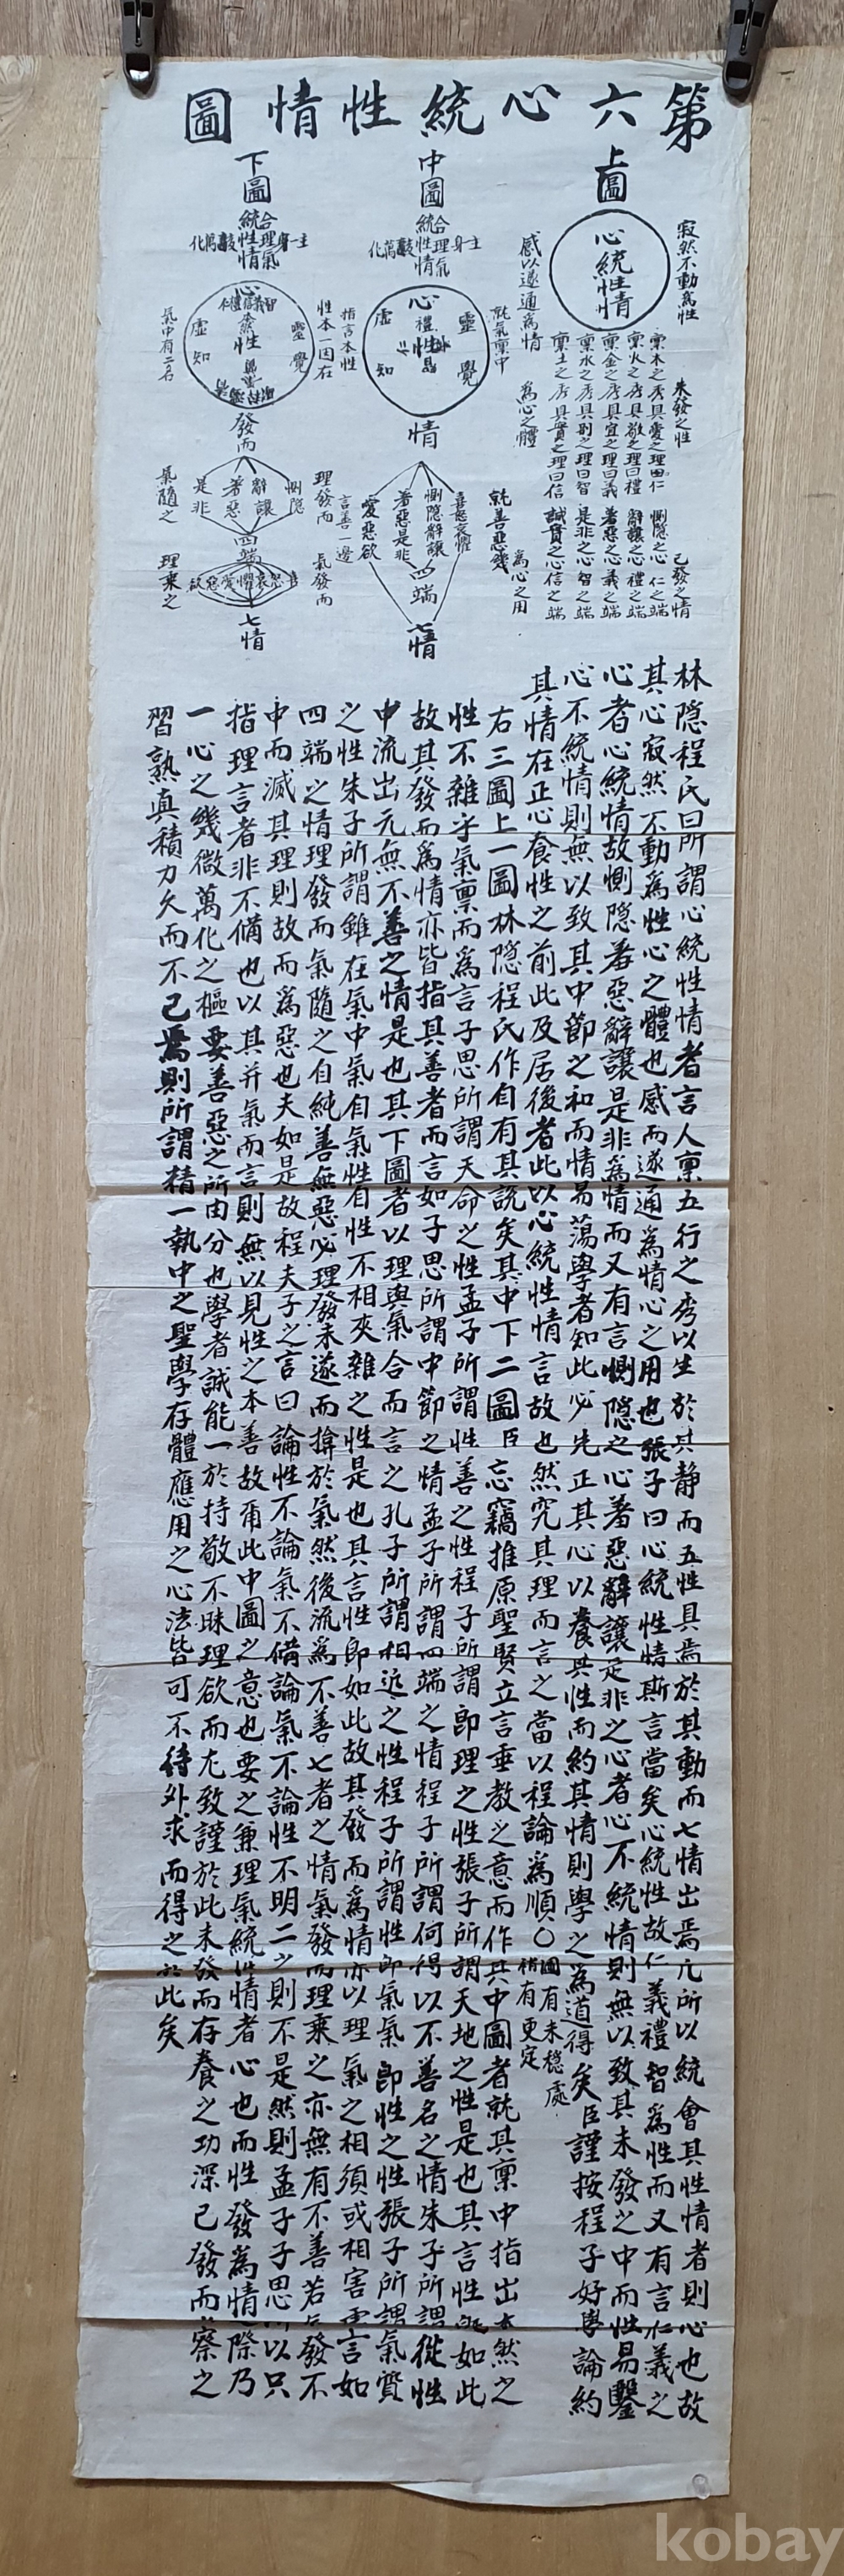 第六心統性情圖
上圖
寂然不動爲性
心統性情
感以遂通爲情
未發之性
稟木之秀具愛之理曰仁
稟火之秀具敬之理曰禮
稟金之秀具宜之理曰義
稟水之秀具別之理曰智
稟土之秀具實之理曰信
爲心之體
已發之情
惻隱之心仁之端
辭讓之心禮之端
羞惡之心義之端
是非之心智之端
誠實之心信之端
爲心之用
中圖
合理氣
統性情
主一身
該萬化
就氣稟中
指言本性
心
虛靈
知覺
禮
仁
性
情
就善惡幾
言善一邊
喜怒哀懼
惻隱辭讓
羞惡是非
愛惡欲
四端
七情
下圖
合理氣
統性情
主一身
該萬化
性本一因在
氣中有二名
心
虛靈
知覺
性
發而
理發而
氣隨之
惻隱
辭讓
羞惡
是非
四端
氣發而
理乘之
喜怒哀懼愛惡欲
七情
林隱程氏曰所謂心統性情者言人稟五行之秀以生於其靜而五性具焉於其動而七情出焉凡所以統會其性情者則心也故
其心寂然不動爲性心之體也感而遂通爲情心之用也張子曰心統性情斯言當矣心統性故仁義禮智爲性而又有言仁義之
心者心統情故惻隱羞惡辭讓是非爲情而又有言惻隱之心羞惡辭讓是非之心者心不統情則無以致其未發之中而性易鑿
心不統情則無以致其中節之和而情易蕩學者知此必先正其心以養其性而約其情則學之爲道得矣臣謹按程子好學論約
其情在正心養性之前此及居後者此以心統性情言故也然究其理而言之當以程論爲順○圖有未穩處稍有更定
右三圖上一圖林隱程氏作自有其說矣其中下二圖臣忘竊推原聖賢立言垂教之意而作其中圖者就其稟中指出本然之
性不雜乎氣稟而爲言子思所謂天命之性孟子所謂性善之性程子所謂卽理之性張子所謂天地之性是也其言性旣如此
故其發而爲情亦皆指其善者而言如子思所謂中節之情孟子所謂四端之情程子所謂何得以不善名之情朱子所謂從性
中流出元無不善之情是也其下圖者以理與氣合而言之孔子所謂相近之性程子所謂性卽氣氣卽性之性張子所謂氣質
之性朱子所謂雖在氣中氣自氣性自性不相夾雜之性是也其言性卽如此故其發而爲情亦以理氣之相須或相害處言如
四端之情理發而氣隨之自純善無惡必理發未遂而揜於氣然後流爲不善七者之情氣發而理乘之亦無有不善若氣發不
中而滅其理則故而爲惡也夫如是故程夫子之言曰論性不論氣不備論氣不論性不明二之則不是然則孟子子思所以只
指理言者非不備也以其幷氣而言則無以見性之本善故爾此中圖之意也要之兼理氣統性情者心也而性發爲情際乃
一心之幾微萬化之樞要善惡之所由分也學者誠能一於持敬不昧理欲而尤致謹於此未發而存養之功深已發而省察之
習熟眞積力久而不已焉則所謂精一執中之聖學存體應用之心法皆可不待外求而得之於此矣
kobay